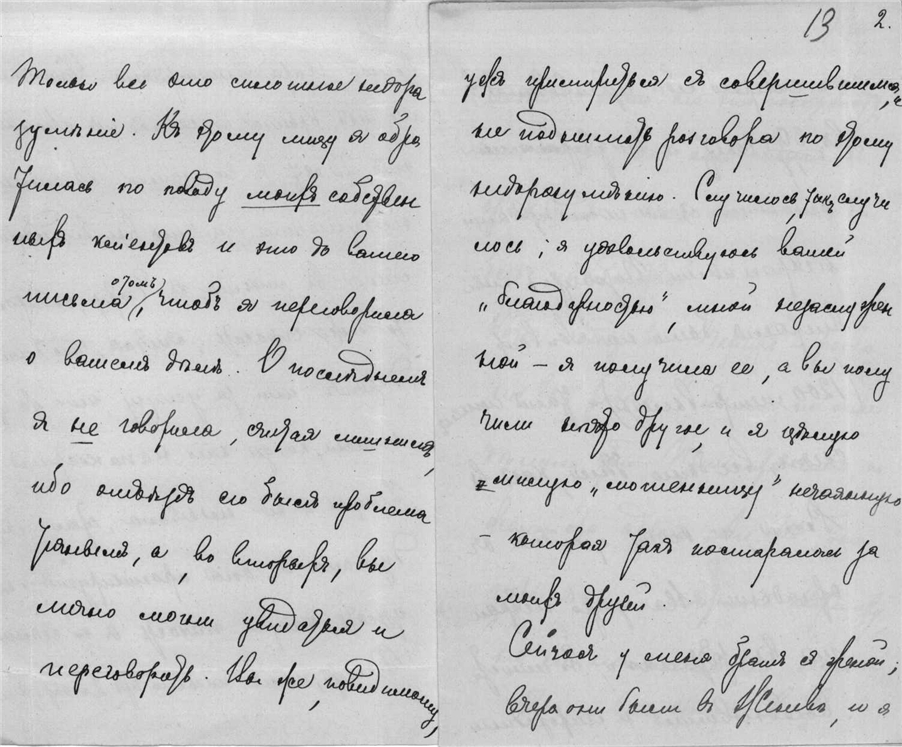 Только все это сплошное недора
зумѣніе. Къ этому лицу я обра
тилась по поводу моихъ собствен
ныхъ клиентовъ и это до вашего
письма о томъ, чтобъ я переговорила
о вашемъ дѣлѣ. О послѣднемъ
я не говорила, считая лишнимъ,
ибо отвѣтъ его былъ проблема
а, во вторыхъ, вы
лично могли увидаться и
переговорить. Вы же, повидимому,
13 2.
успѣ примириться съ совершившимся, и
не подымать разговора по этому
недоразумѣнію. Случилось, такъ случи
лось; я удовольствуюсь вашей
„благодарностью", мной незаслужен
ной – я получила ее, а вы полу
чили нѣчто другое, и я цѣлую
милую „мошенницу" нечаянную
– которая такъ постаралась за
моихъ друзей.
Сейчасъ у меня братъ съ женой;
вчера они были въ Женевѣ, и я